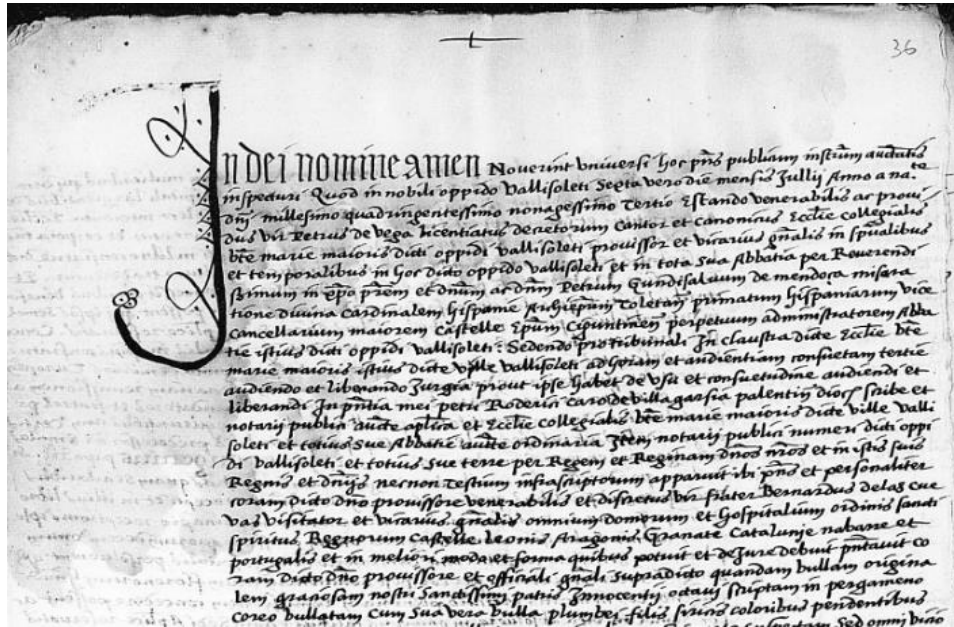 36
In dei nomine amen Noverint Universi hoc pñs publicum instrũm
inspecturi Quod in nobili oppido Vallisoleti Septa vero die mensis Jullii Anno a na.te
dnj millesimo quadringentessimo nonagessimo Tertio Estando venerabilis ac provi
dus vir Petrus de Vega licentiatus decretorum Cantor et Canonicus Ecclie collegialis
bte marie maioris dicti oppidi vallisoleti provissor et vicarius gñalis in spũalibus
et temporalibus in hoc dicto oppido Vallisoleti et in tota Sua Abbatia per Reverendi
ssimum in xpõ prẽm et dñum ac dñm Petrum Gundisalvum de mendoça misera
tione divina Cardinalem hispanie Archiepũm Toletañ primatum hispaniarum vice
cancellarium maiorem Castelle Epũm perpetuum administratorem Abba
tie istius dicti oppidi vallisoleti: Sedendo pro tribunali In claustra dicte Ecclie bte
marie maioris istius dicte ville vallisoleti ad horam et audientiam consuetam tertie
audiendo et liberando prout ipse habet de usu et consuetudine audiendi et
liberandi In pñtia mei petri Roderici de villagarsia palentin dioc scribe et
notarij publici aucte aplica et Ecclie collegialis bte marie maioris dicte ville valli
soleti et totius Sue Abbatie aucte ordinaria Item notarij publici numeri dicti oppi
di vallisoleti et totius Sue terre per Regem et Reginam dños nr̃os et in istis suis
Regnis et dñijs necnon Testium infrascriptorum apparuit ibi pñs et personaliter
coram dicto dño provissore venerabilis et discretus vir frater Bernardus delas Cue
vas visitator et vicarius gñalis omnium domorum et hospitalium ordinis sancti
spiritus Regnorum Castelle Leonis Aragonis Granate Catalunje nabarre et
portugalis et in meliori modo et forma quibus potuit et de Jure debuit pñtavit co
ram dicto dño provissore et officiali gñali Supradicto quandam bullam origina
lem graciosam nostri Sanctissimi patris Innocentij octavi scriptam in pergameno
Coreo bullatam Cum Sua vera bulla plumbei filis siricis coloribus pendentibus
Sed omni vicio